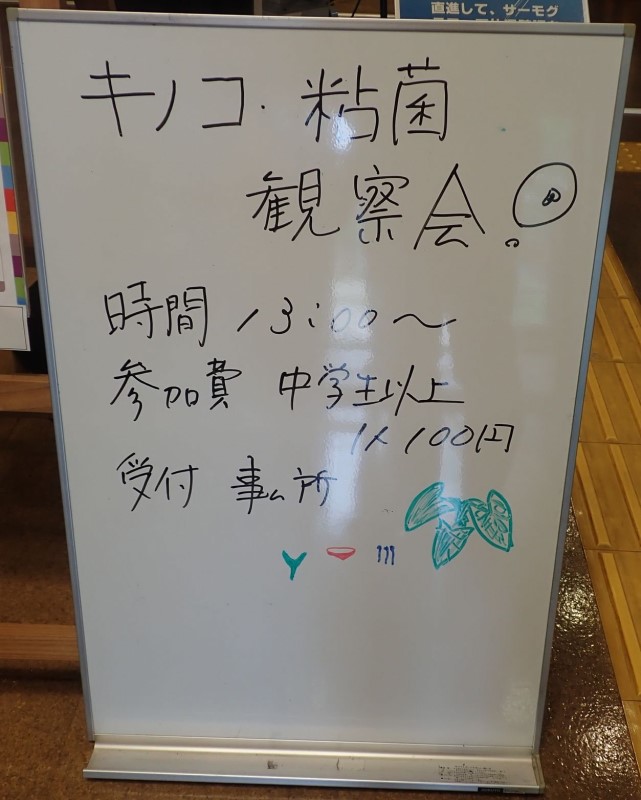 直進して、サーモグ
キノコ・粘菌
観察会
時間 13:00〜
参加費 中学生以上
1人100円
受付 事ム所